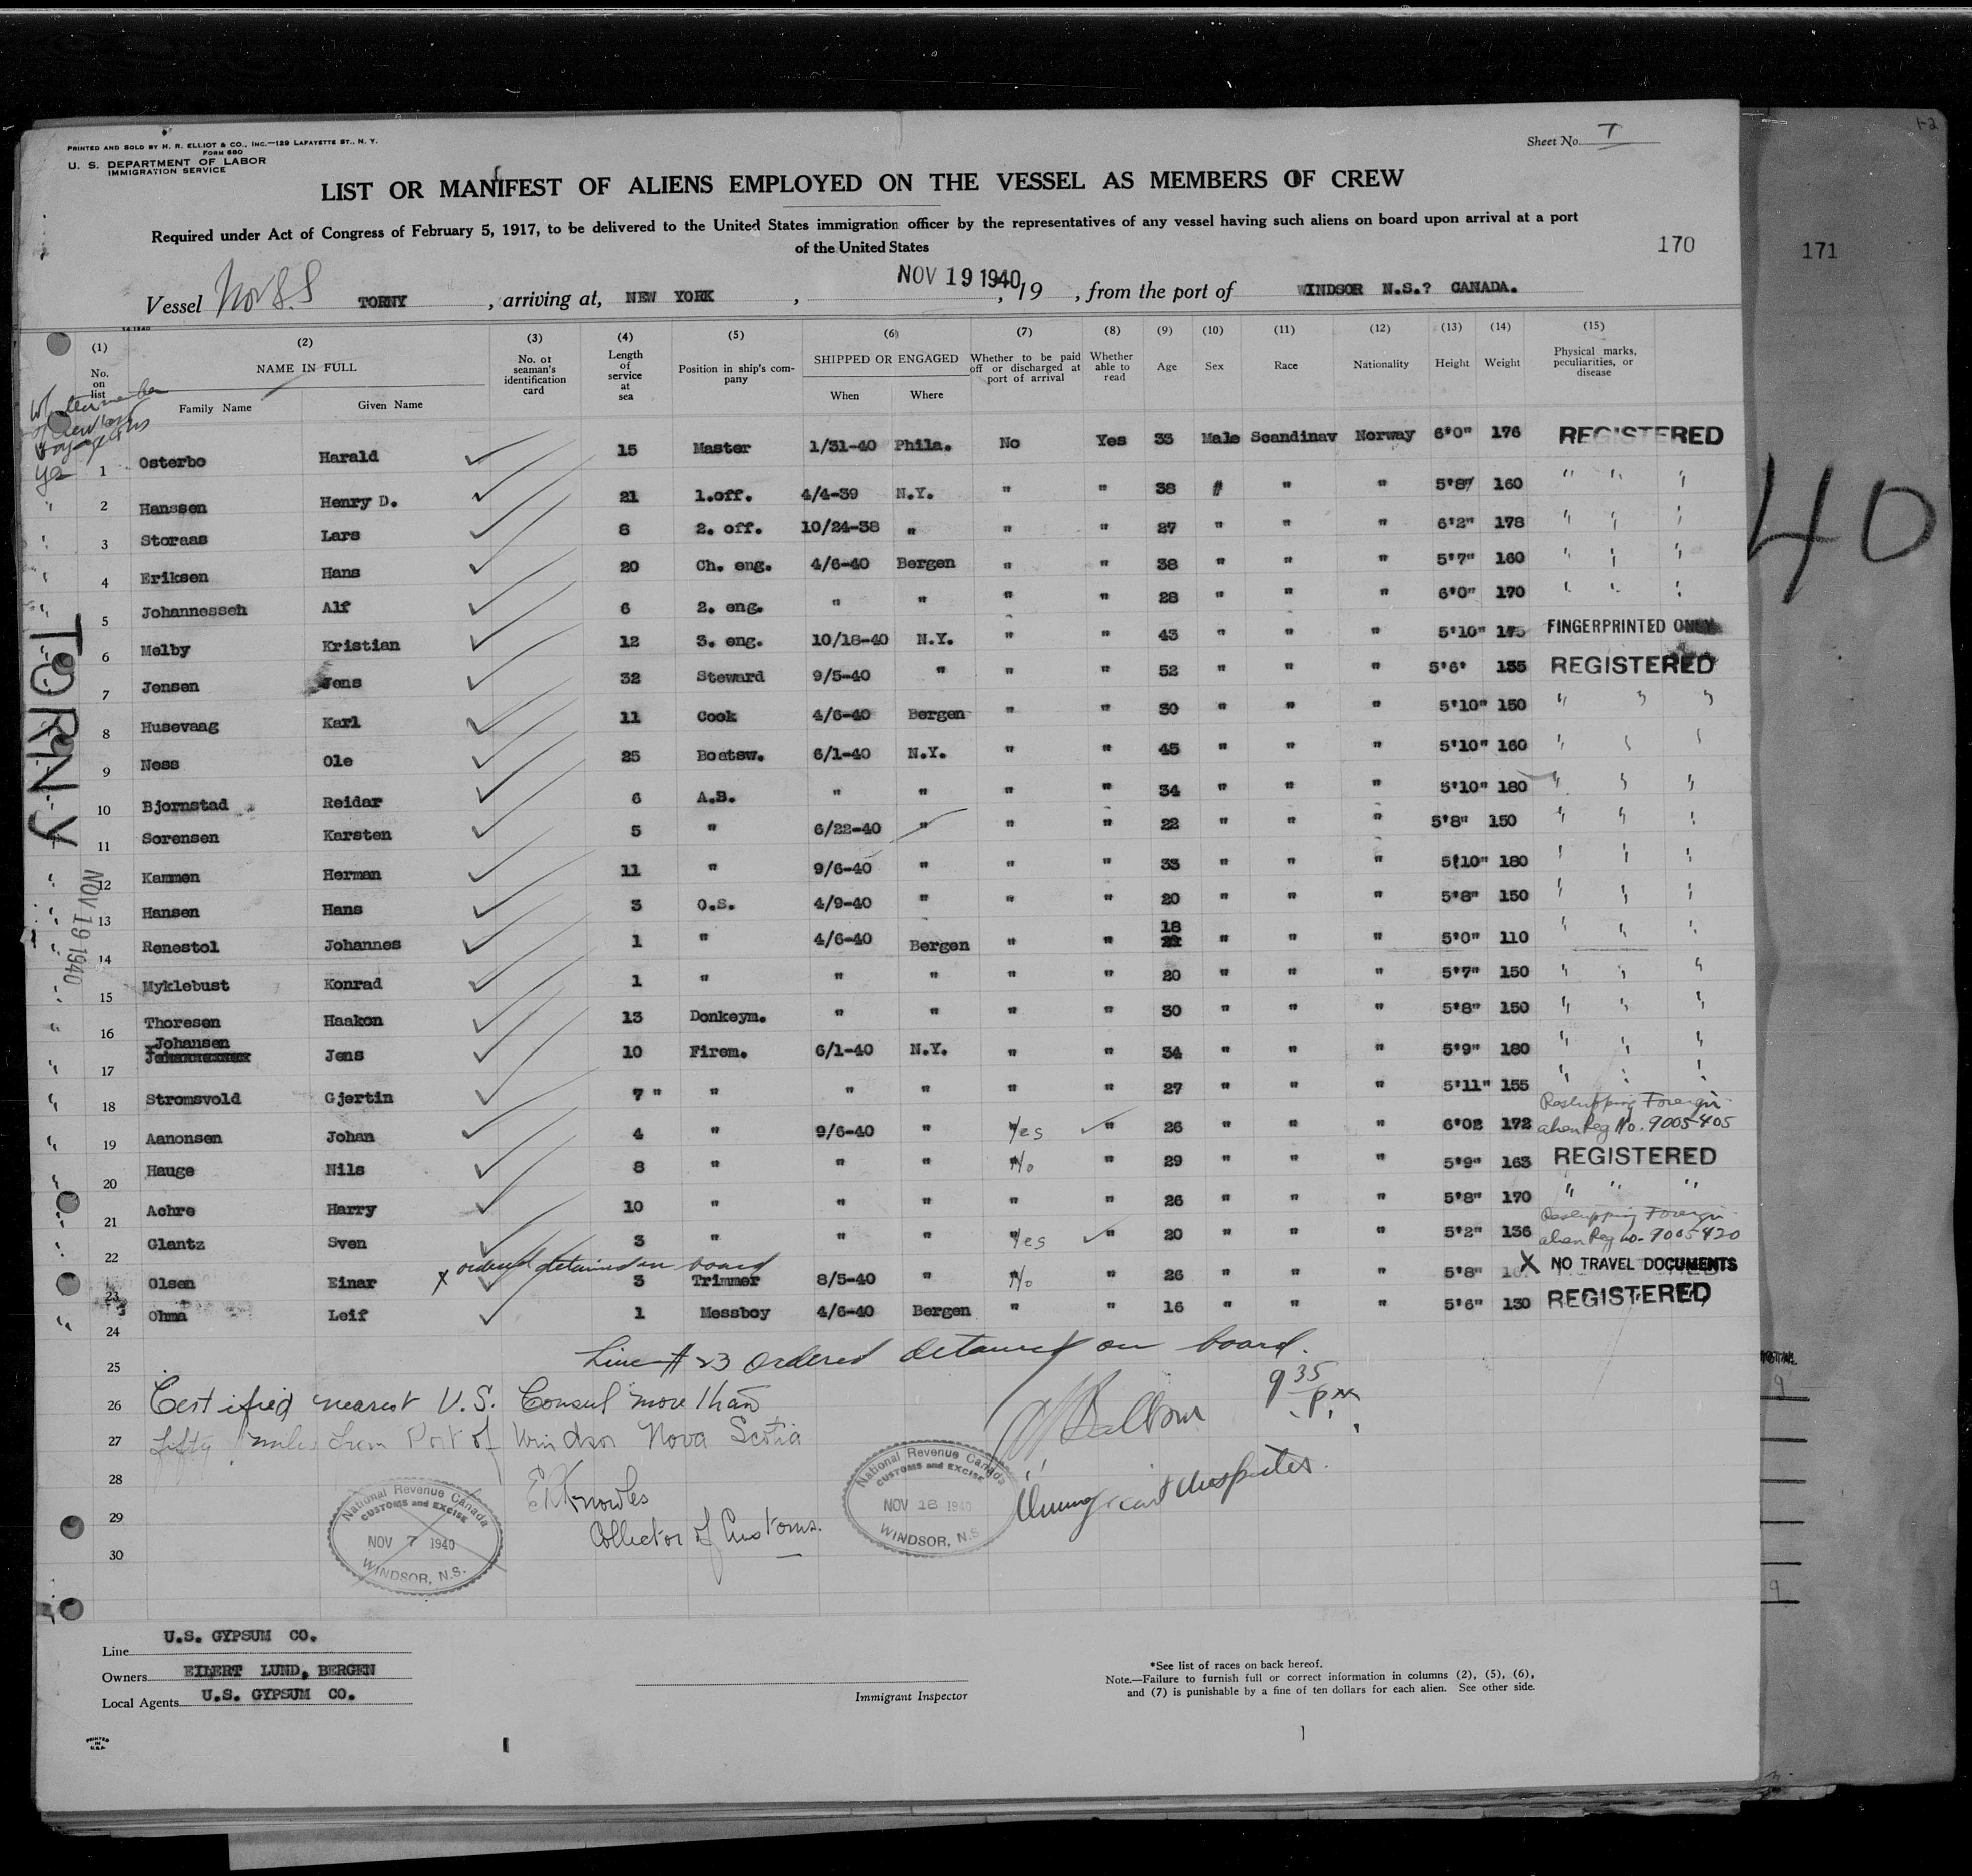 1-2
PRINTED AND SOLD BY H. R. ELLIOT & CO., INC.—129 LAFAYETTE ST., N. Y.
FORM 680
U. S. DEPARTMENT OF LABOR
IMMIGRATION SERVICE
Sheet No. I
LIST OR MANIFEST OF ALIENS EMPLOYED ON THE VESSEL AS MEMBERS OF CREW
Required under Act of Congress of February 5, 1917, to be delivered to the United States immigration officer by the representatives of any vessel having such aliens on board upon arrival at a port
of the United States
170
171
Vessel Nor S.S TORNY, arriving at, NEW YORK, NOV 19 1940, 19 , from the port of WINDSOR N.S.? CANADA.
(1) (2) (3) (4) (5) (6) (7) (8) (9) (10) (11) (12) (13) (14) (15)
No. on list
NAME IN FULL
Family Name Given Name
No. of seaman's identification card
Length of service at sea
Position in ship's company
SHIPPED OR ENGAGED
When Where
Whether to be paid off or discharged at port of arrival
Whether able to read
Age Sex Race Nationality Height Weight
Physical marks, peculiarities, or disease
Yes 1 Osterbo Harald 15 Master 1/31-40 Phila. No Yes 33 Male Scandinav Norway 6'0" 176 REGISTERED
" 2 Hanssen Henry D. 21 1.off. 4/4-39 N.Y. " " 38 # " " 5'8" 160 " " "
" 3 Storaas Lars 8 2. off. 10/24-38 " " " 27 " " " 6'2" 178 " " "
" 4 Eriksen Hans 20 Ch. eng. 4/6-40 Bergen " " 38 " " " 5'7" 160 " " "
" 5 Johannesseh Alf 6 2. eng. " " " " 28 " " " 6'0" 170 " " "
" 6 Melby Kristian 12 3. eng. 10/18-40 N.Y. " " 43 " " " 5'10" 175 FINGERPRINTED ONLY
" 7 Jensen Jens 32 Steward 9/5-40 " " " 52 " " " 5'6" 135 REGISTERED
" 8 Husevaag Karl 11 Cook 4/6-40 Bergen " " 30 " " " 5'10" 150 " " "
" 9 Ness Ole 25 Boatsw. 6/1-40 N.Y. " " 45 " " " 5'10" 160 " " "
" 10 Bjornstad Reidar 6 A.B. " " " " 34 " " " 5'10" 180 " " "
" 11 Sorensen Karsten 5 " 6/22-40 " " " 22 " " " 5'8" 150 " " "
" 12 Kammen Herman 11 " 9/6-40 " " " 33 " " " 5'10" 180 " " "
" 13 Hansen Hans 3 O.S. 4/9-40 " " " 20 " " " 5'8" 150 " " "
" 14 Renestol Johannes 1 " 4/6-40 Bergen " " 18 " " " 5'0" 110 " " "
" 15 Myklebust Konrad 1 " " " " " 20 " " " 5'7" 150 " " "
" 16 Thoresen Haakon 13 Donkeym. " " " " 30 " " " 5'8" 150 " " "
" 17 Johansen Jens 10 Firem. 6/1-40 N.Y. " " 34 " " " 5'9" 180 " " "
" 18 Stromsvold Gjertin 7 " " " " " " 27 " " " 5'11" 155 " " "
" 19 Aanonsen Johan 4 " 9/6-40 " Yes " 26 " " " 6'02 172 Reshipping Foreign alien Reg No. 9005405
" 20 Hauge Nils 8 " " " No " 29 " " " 5'9" 163 REGISTERED
" 21 Achre Harry 10 " " " " " 26 " " " 5'8" 170 " " "
" 22 Glantz Sven 3 " " " Yes " 20 " " " 5'2" 136 Reshipping Foreign alien Reg no. 9005420
x ordered detained on board
" 23 Olsen Einar 3 Trimmer 8/5-40 " No " 26 " " " 5'8" X NO TRAVEL DOCUMENTS
" 24 Ohma Leif 1 Messboy 4/6-40 Bergen " " 16 " " " 5'6" 130 REGISTERED
25 Line # 23 ordered detained on board.
9 35 pm
26 Certified nearest U.S. Consul more than
27 fifty miles from Port of Windsor Nova Scotia
28
29 Knowles
Collector of Customs.
30
Immigrant Inspector
National Revenue Canada
CUSTOMS and EXCISE
NOV 7 1940
WINDSOR, N.S.
National Revenue Canada
CUSTOMS and EXCISE
NOV 16 1940
WINDSOR, N.S.
TORNY
NOV 19 1940
40
Line U.S. GYPSUM CO.
Owners EILERT LUND, BERGEN
Local Agents U.S. GYPSUM CO.
Immigrant Inspector
*See list of races on back hereof.
Note.—Failure to furnish full or correct information in columns (2), (5), (6),
and (7) is punishable by a fine of ten dollars for each alien. See other side.
PRINTED
IN
U.S.A.